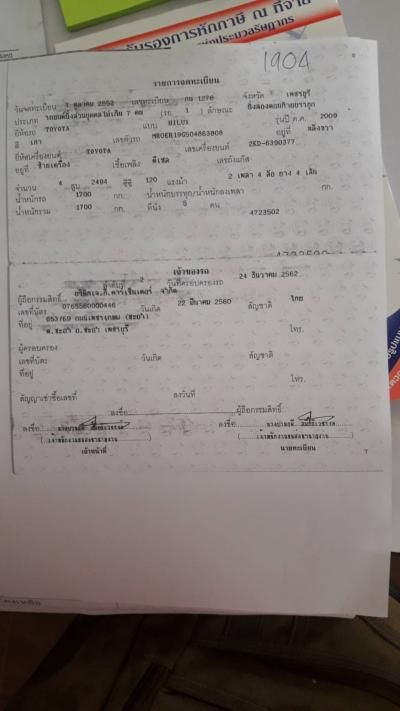 รับรองการหักภาษี ณ ที่จ่าย
แห่งประมวลรัษฎากร
1904
6
รายการจดทะเบียน
วันจดทะเบียน 7 ตุลาคม 2552 เลขทะเบียน กน 1276 จังหวัด เพชรบุรี
ประเภท รถยนต์นั่งส่วนบุคคลไม่เกิน 7 คน (รย. 1) ลักษณะ นั่งสองตอนท้ายบรรทุก
ยี่ห้อรถ TOYOTA แบบ HILUX รุ่นปี ค.ศ. 2009
สี เทา เลขตัวรถ MR0ER19G504863808 อยู่ที่ หลังขวา
ยี่ห้อเครื่องยนต์ TOYOTA เลขเครื่องยนต์ 2KD-6390377
อยู่ที่ ซ้ายเครื่อง เชื้อเพลิง ดีเซล เลขถังแก๊ส
จำนวน 4 สูบ 2494 ซีซี 120 แรงม้า 2 เพลา 4 ล้อ ยาง 4 เส้น
น้ำหนักรถ 1700 กก. น้ำหนักบรรทุก/น้ำหนักลงเพลา กก.
น้ำหนักรวม 1700 กก. ที่นั่ง 5 คน
4723502
เจ้าของรถ
ลำดับที่ วันที่ครอบครองรถ 24 ธันวาคม 2562
ผู้ถือกรรมสิทธิ์
เลขที่บัตร 0765560000446 วันเกิด 22 มีนาคม 2560 สัญชาติ ไทย
ที่อยู่ 653/69 ถนนเพชรเกษม (ชะอำ)
ต.ชะอำ อ.ชะอำ เพชรบุรี โทร.
ผู้ครอบครอง
เลขที่บัตร วันเกิด สัญชาติ
ที่อยู่
โทร.
สัญญาเช่าซื้อเลขที่ ลงวันที่
ลงชื่อ ผู้ถือกรรมสิทธิ์
ลงชื่อ ลงชื่อ
(เจ้าพนักงานขนส่งชำนาญงาน) (เจ้าพนักงานขนส่งชำนาญงาน)
เจ้าหน้าที่ นายทะเบียน
7